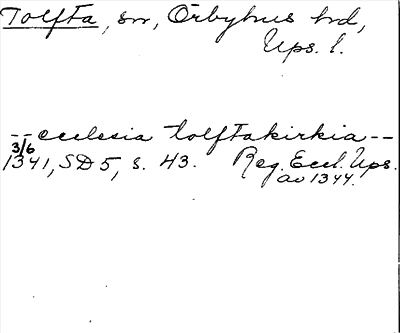 Tolfta, sn, Örbyhus hd,
Ups. l.
-- ecclesia tolftakirkia --
3/6
1341, SD 5, s. 43. Reg. Eccl. Ups.
av 1344.